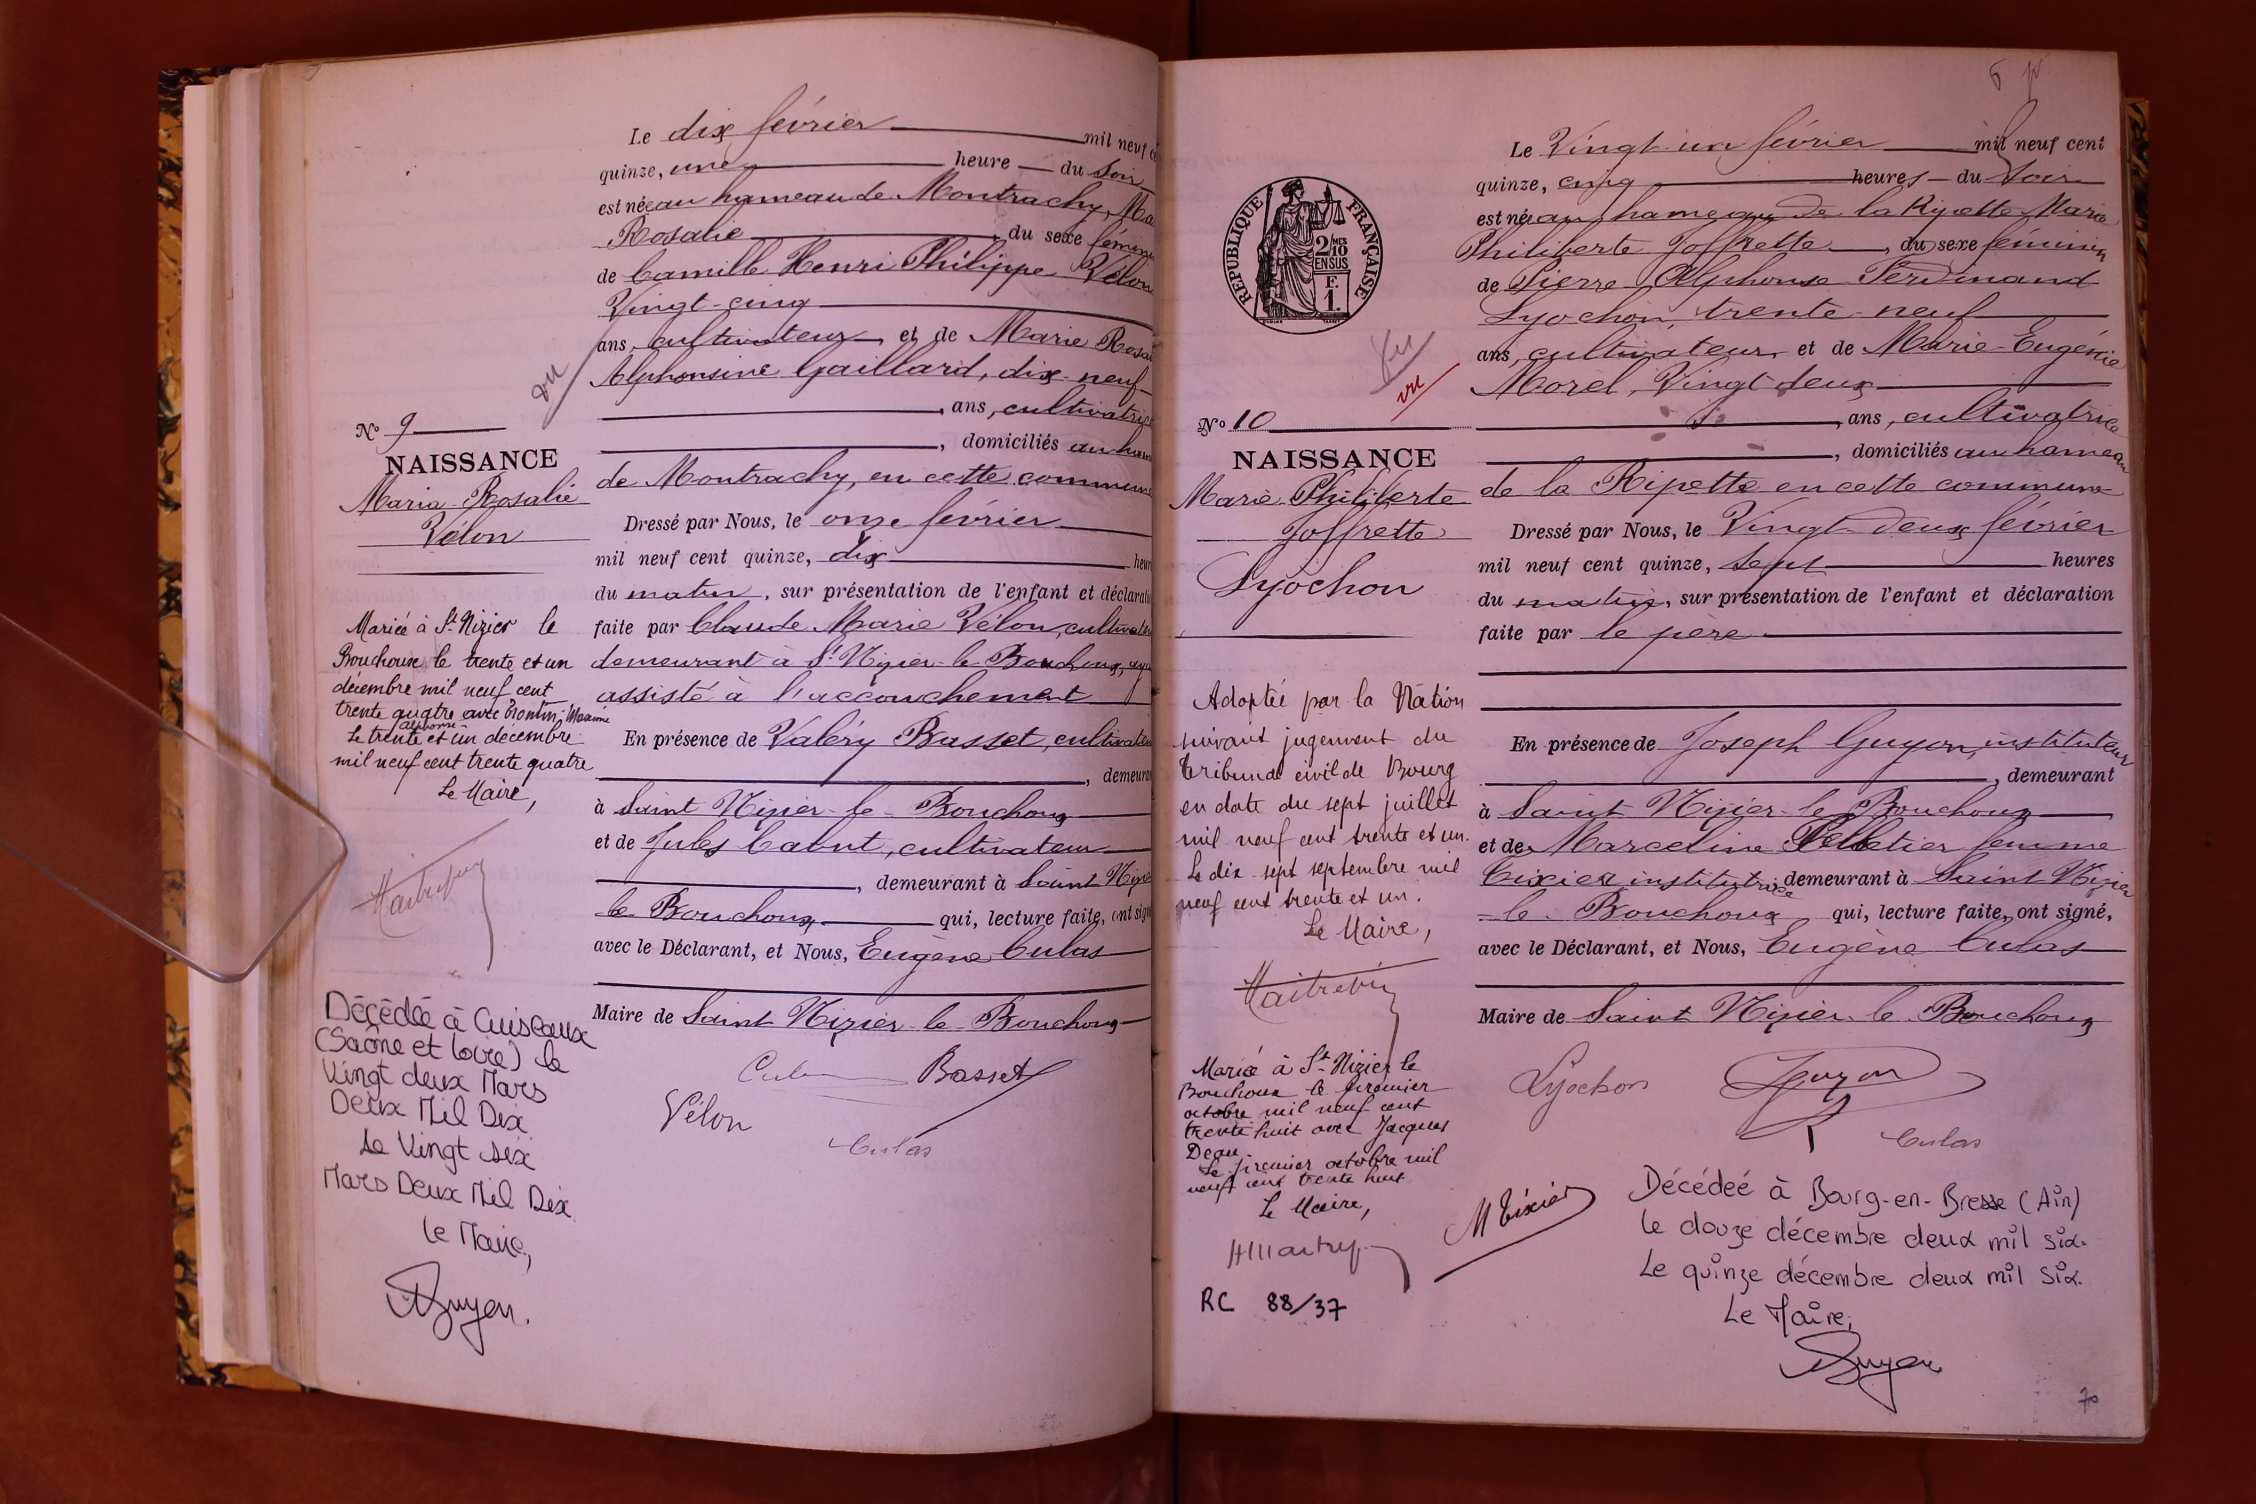 Le dix février mil neuf
quinze, une heure du soir
est née au hameau de Montrachy, Ma
Rosalie du sexe fémin
de Camille Henri Philippe Vélon
Vingt-cinq
ans, cultivateur et de Marie Rosa
Alphonsine Gaillard, dix-neuf
ans, cultivatri
domiciliés au ham
de Montrachy, en cette commune
Dressé par Nous, le onze février
mil neuf cent quinze, dix heur
du matin, sur présentation de l'enfant et déclarati
faite par Claude Marie Vélon, cultivat
demeurant à St Nizier-le-Bouchoux, aya
assisté à l'accouchement
En présence de Valéry Basset, cultivateu
, demeura
à Saint Nizier-le-Bouchoux
et de Jules Cabut, cultivateur
, demeurant à Saint Nizie
le Bouchoux qui, lecture faite, ont sign
avec le Déclarant, et Nous, Eugène Culas
Maire de Saint Nizier-le-Bouchoux
Basset
Vélon
Culas
vu
No 9
NAISSANCE
Maria Rosalie
Vélon
Mariée à St-Nizier le
Bouchoux le trente et un
décembre mil neuf cent
trente quatre avec
Le trente et un décembre
mil neuf cent trente quatre
Le Maire,
Décédée à Cuiseaux
(Saône et Loire) le
Vingt deux Mars
Deux Mil Dix
Le Vingt six
Mars Deux Mil Dix
Le Maire,
RÉPUBLIQUE FRANÇAISE
2 MES
10
EN SUS
F.
1.
vu
vu
No 10
NAISSANCE
Marie Philiberte
Joffrette
Lyochon
Le Vingt-un février mil neuf cent
quinze, cinq heures du soir
est née au hameau de la Ripette Marie
Philiberte Joffrette, du sexe féminin
de Pierre Alphonse Ferdinand
Lyochon, trente-neuf
ans, cultivateur et de Marie-Eugénie
Morel, Vingt-deux
ans, cultivatrice
, domiciliés au hameau
de la Ripette en cette commune
Dressé par Nous, le Vingt-deux février
mil neuf cent quinze, sept heures
du matin, sur présentation de l'enfant et déclaration
faite par le père
En présence de Joseph Guyon, instituteur
, demeurant
à Saint Nizier-le-Bouchoux
et de Marceline Pelletier femme
Tixier, institutrice demeurant à Saint Nizier
-le-Bouchoux qui, lecture faite, ont signé,
avec le Déclarant, et Nous, Eugène Culas
Maire de Saint Nizier-le-Bouchoux
Lyochon
Guyon
Culas
M Tixier
Adoptée par la Nation
suivant jugement du
tribunal civil de Bourg
en date du sept juillet
mil neuf cent trente et un.
Le dix-sept septembre mil
neuf cent trente et un.
Le Maire,
Mariée à St-Nizier le
Bouchoux le premier
octobre mil neuf cent
trente huit avec Jacques
Deau
Le premier octobre mil
neuf cent trente huit
Le Maire,
RC 88/37
Décédée à Bourg-en-Bresse (Ain)
le douze décembre deux mil six.
Le quinze décembre deux mil six.
Le Maire,
70